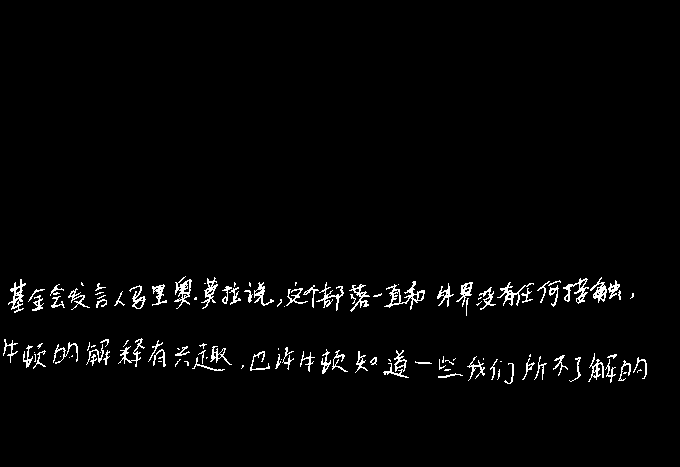 基金会发言人马里奥·莫拉说,这个部落一直和外界没有任何接触,
牛顿的解释有兴趣,也许牛顿知道一些我们所不了解的